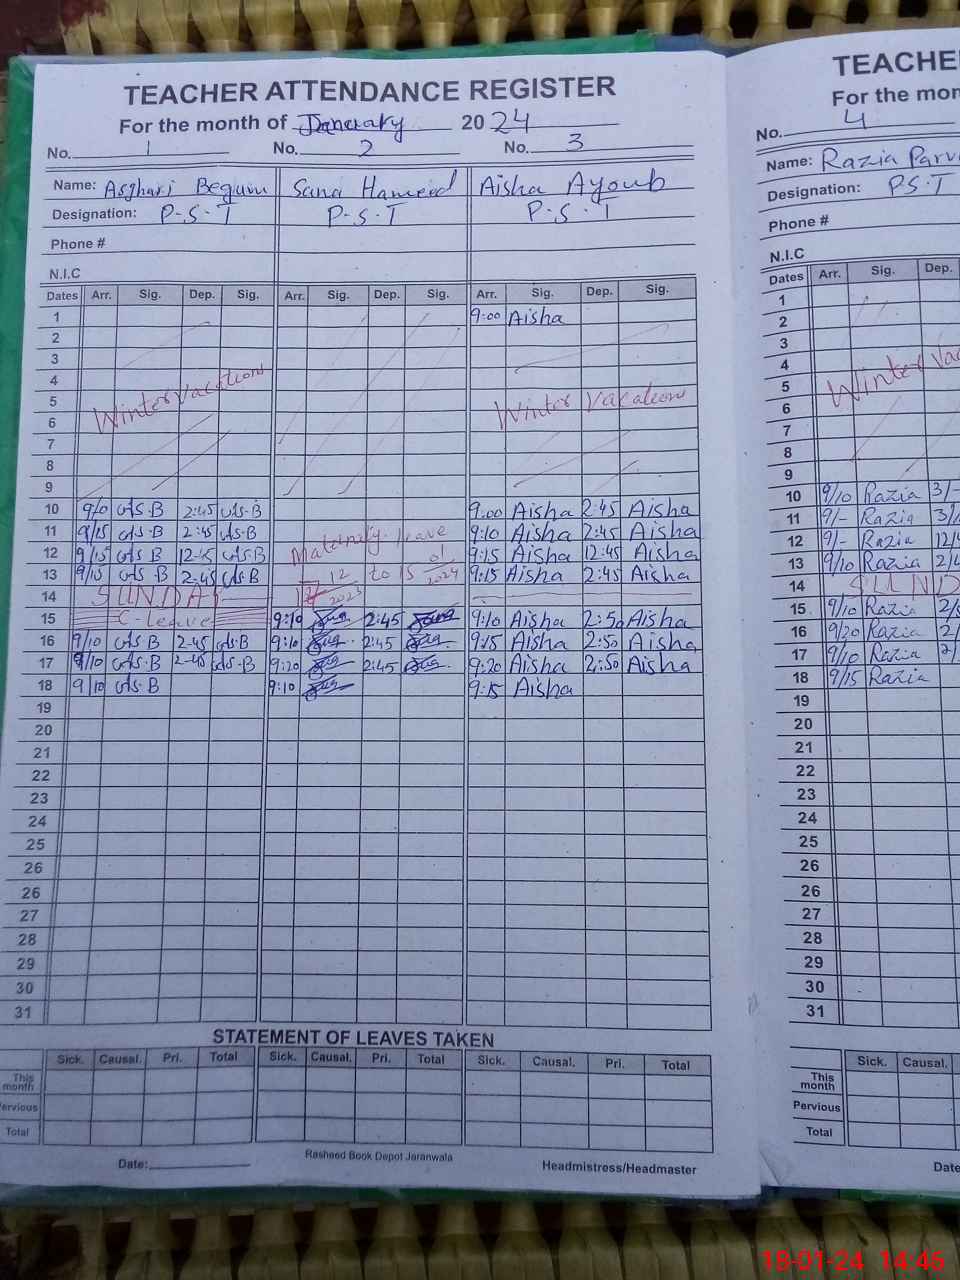 TEACHER ATTENDANCE REGISTER
For the month of January 2024
No. 1 No. 2 No. 3
Name: Asghari Begum Sana Hameed Aisha Ayoub
Designation: P-S-T P-S-T P-S-T
Phone #
N.I.C
Dates Arr. Sig. Dep. Sig. Arr. Sig. Dep. Sig. Arr. Sig. Dep. Sig.
1 9:00 Aisha
2
3
4
5 Winter Vacations Winter Vacations
6
7
8
9
10 9/10 2:45 9.00 Aisha 2:45 Aisha
11 9/15 2:45 Maternity leave 9:10 Aisha 2:45 Aisha
12 9/15 12:45 9:15 Aisha 12:45 Aisha
13 9/15 2-45 12 2023 to 15 01 2024 9:15 Aisha 2:45 Aisha
14 SUNDAY
15 C-leave 9:10 2:45 9:10 Aisha 2:50 Aisha
16 9/10 2-45 9:10 2:45 9:15 Aisha 2:50 Aisha
17 9/10 2-45 9:20 2:45 9:20 Aisha 2:50 Aisha
18 9/10 9:10 9:15 Aisha
19
20
21
22
23
24
25
26
26
27
28
29
30
31
STATEMENT OF LEAVES TAKEN
Sick. Causal. Pri. Total Sick. Causal. Pri. Total Sick. Causal. Pri. Total
This month
Pervious
Total
Date: Rasheed Book Depot Jaranwala Headmistress/Headmaster
TEACHE
For the mon
No. 4
Name: Razia Parv
Designation: PST
Phone #
N.I.C
Dates Arr. Sig. Dep.
1
2
3
4
5 Winter Vac
6
7
8
9
10 9/10 Razia
11 9/- Razia
12 9/- Razia
13 9/10 Razia
14 SUND
15 9/10 Razia
16 9/20 Razia
17 9/10 Razia
18 9/15 Razia
19
20
21
22
23
24
25
26
26
27
28
29
30
31
Sick. Causal.
This month
Pervious
Total
Date
18-01-24 14:46